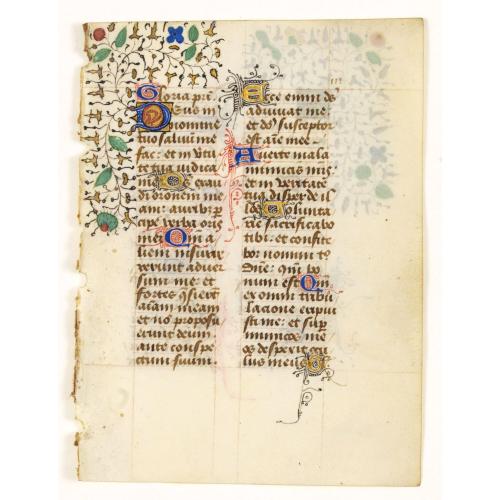 Gloria pri
Deus in
nomine
tuo salvum me
fac: et in virtu
te tua iudica
me Deus exau
di orationem me
am: auribus per
cipe verba oris
mei Qm a
lieni insurre
xerunt adver
sum me: et
fortes qsierut
animam meam
et no proposu
erunt deum
ante conspe
ctum suum
Ecce enim ds
adiuvat me
et ds susceptor
est aie mee
Averte mala
inimicis mis
et in veritate
tua disperde il
los Volunta
rie sacrificabo
tibi: et confite
bor nomini tuo
Dne: qm bo
num est Q
ex omni tribu
lacione eripui
sti me: et sup
inimicos me
os despexit ocu
lus meus